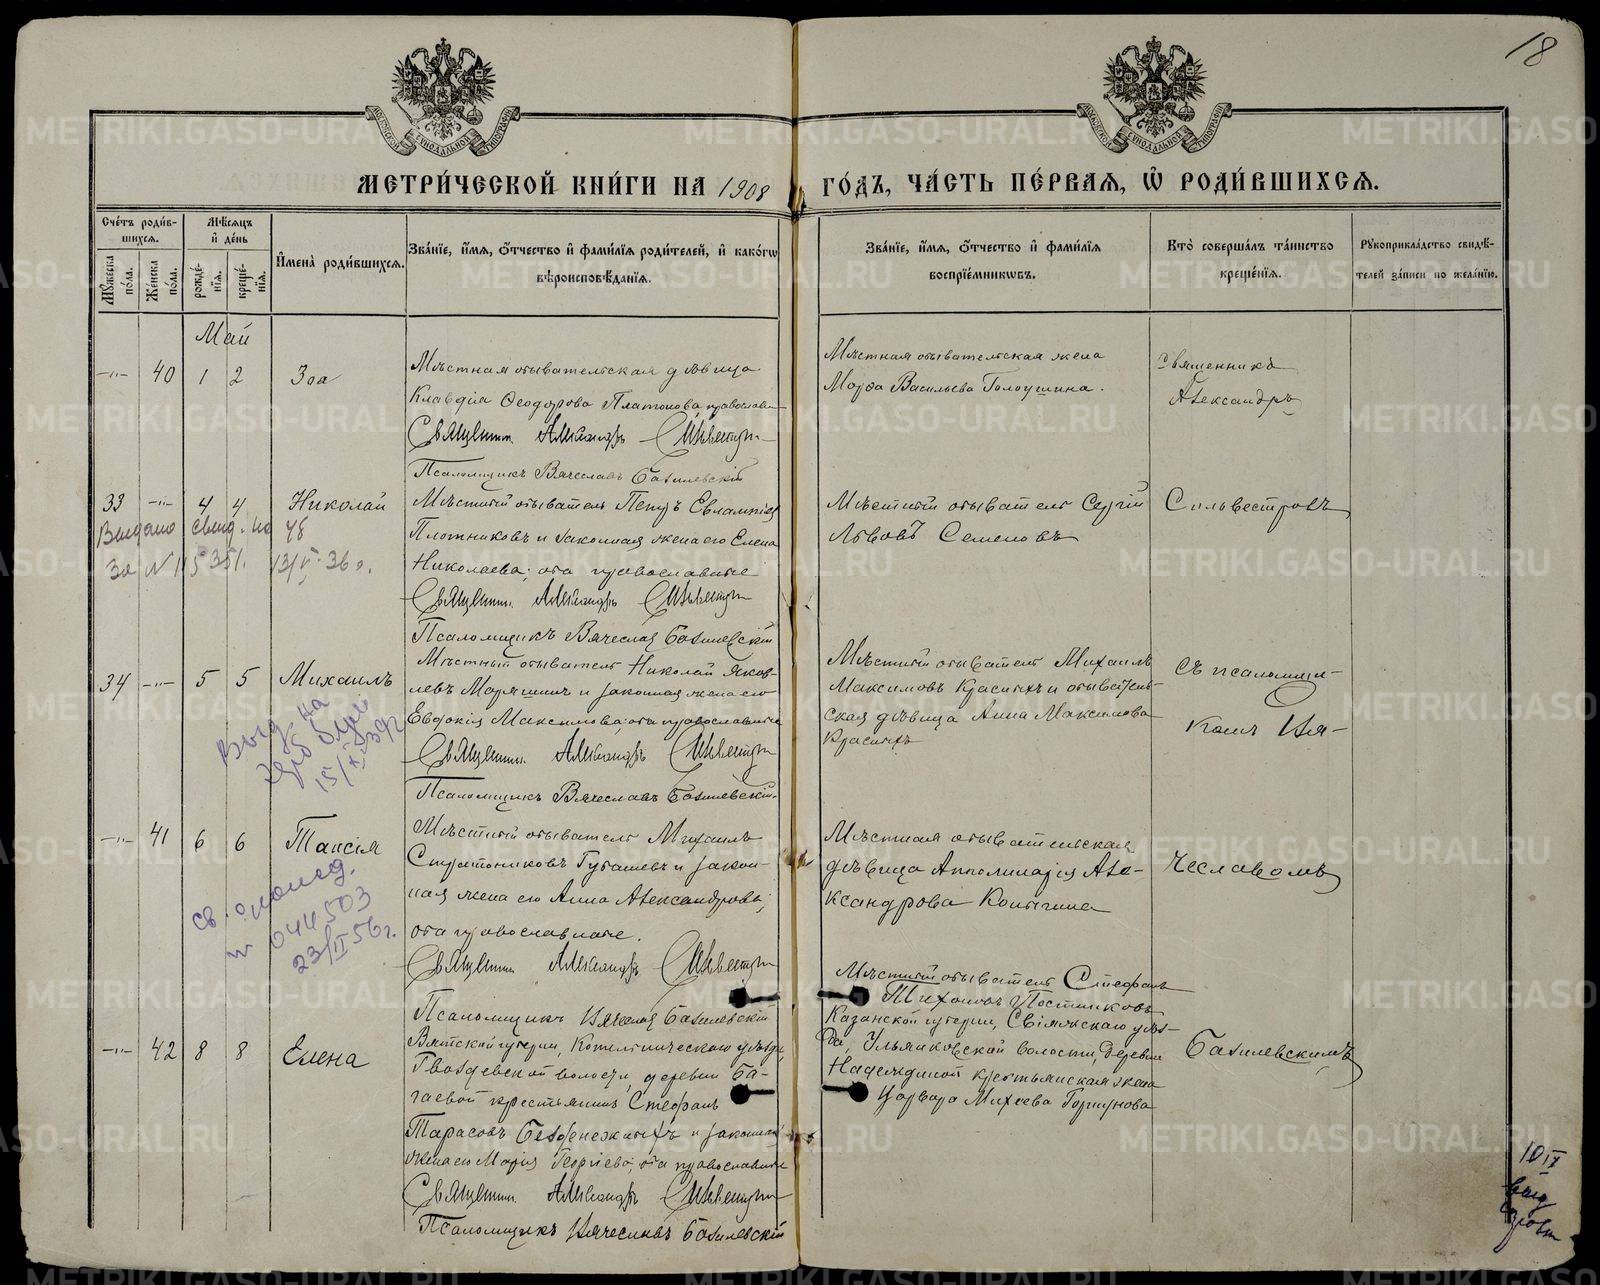 18
МЕТРИ́ЧЕСКОЙ КНИ́ГИ НА 1908 ГО́ДЪ, ЧА́СТЬ ПЕ́РВАЯ, Ѡ РОДИ́ВШИХСЯ.
Сче́тъ роди́вшихся.
Мꙋ́жеска по́ла.
Же́нска по́ла.
Мѣ́сяцъ и҆ де́нь
рожде́нїя.
креще́нїя.
И҆мена̀ роди́вшихся.
Зва́нїе, и҆́мя, ѻ҆́тчество и҆ фами́лїя роди́телей, и҆ како́гѡ вѣроисповѣ́данїя.
Зва́нїе, и҆́мя, ѻ҆́тчество и҆ фами́лїя воспрїе́мникѡвъ.
Кто̀ соверша́лъ та́инство креще́нїя.
Рꙋкоприкла́дство свидѣ́телей за́писи по жела́нїю.
Май
40 1 2 Зоа
Мѣстная обывательская дѣвица
Клавдіа Ѳеодорова Платонова, православн
Священникъ Александръ Сильвестровъ
Псаломщикъ Вячеславъ Базилевскій
Мѣстная обывательская жена
Марѳа Васильева Голоушина.
Священникъ
Александръ
33 4 4 Николай
Выдано свид. на
За № 5351. 13/V 36 г.
Мѣстный обыватель Петръ Евлампіевъ
Плотниковъ и законная жена его Елена
Николаева; оба православные
Священник. Александръ Сильвестровъ
Псаломщикъ Вячеслав Базилевскій
Мѣстный обыватель Сергій
Львовъ Семеновъ
Сильвестровъ
34 5 5 Михаилъ
Выд. на
15/X 39 г.
Мѣстный обыватель Николай Яков-
левъ и законная жена его
Евдокія Максимова; оба православные
Священник. Александръ Сильвестровъ
Псаломщикъ Вячеславъ Базилевскій.
Мѣстный обыватель Михаилъ
Максимовъ Красныхъ и обыватель-
ская дѣвица Анна Максимова
Красныхъ
съ псаломщи-
комъ Вя-
41 6 6 Таисія
св.
044503
23/II 56 г.
Мѣстный обыватель Михаилъ
Стратониковъ и закон-
ная жена его Анна Александрова;
оба православные.
Священник Александръ Сильвестровъ
Псаломщикъ Вячеслав Базилевскій
Мѣстная обывательская
дѣвица Апполинарія Але-
ксандрова Копыгина
чеславомъ
42 8 8 Елена
Вятской губерніи, Котельническаго уѣзда,
Гвоздевской волости, деревни Ба-
гаевой крестьянинъ Стефанъ
Тарасовъ и законная
жена его Марія Георгіева; оба православные
Священник. Александръ Сильвестровъ
Псаломщикъ Вячеславъ Базилевскій
Мѣстный обыватель Стефанъ
Тихоновъ Постниковъ
Казанской губерніи, Свіяжскаго уѣз-
да, Ульянковской волости, деревни
Надеждиной крестьянская жена
Варвара Михеева Горшунова
Базилевскимъ
10 IX
METRIKI.GASO-URAL.RU